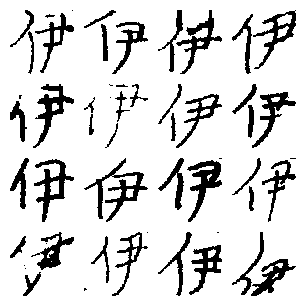 伊伊伊伊
伊伊伊伊
伊伊伊伊
伊伊伊伊